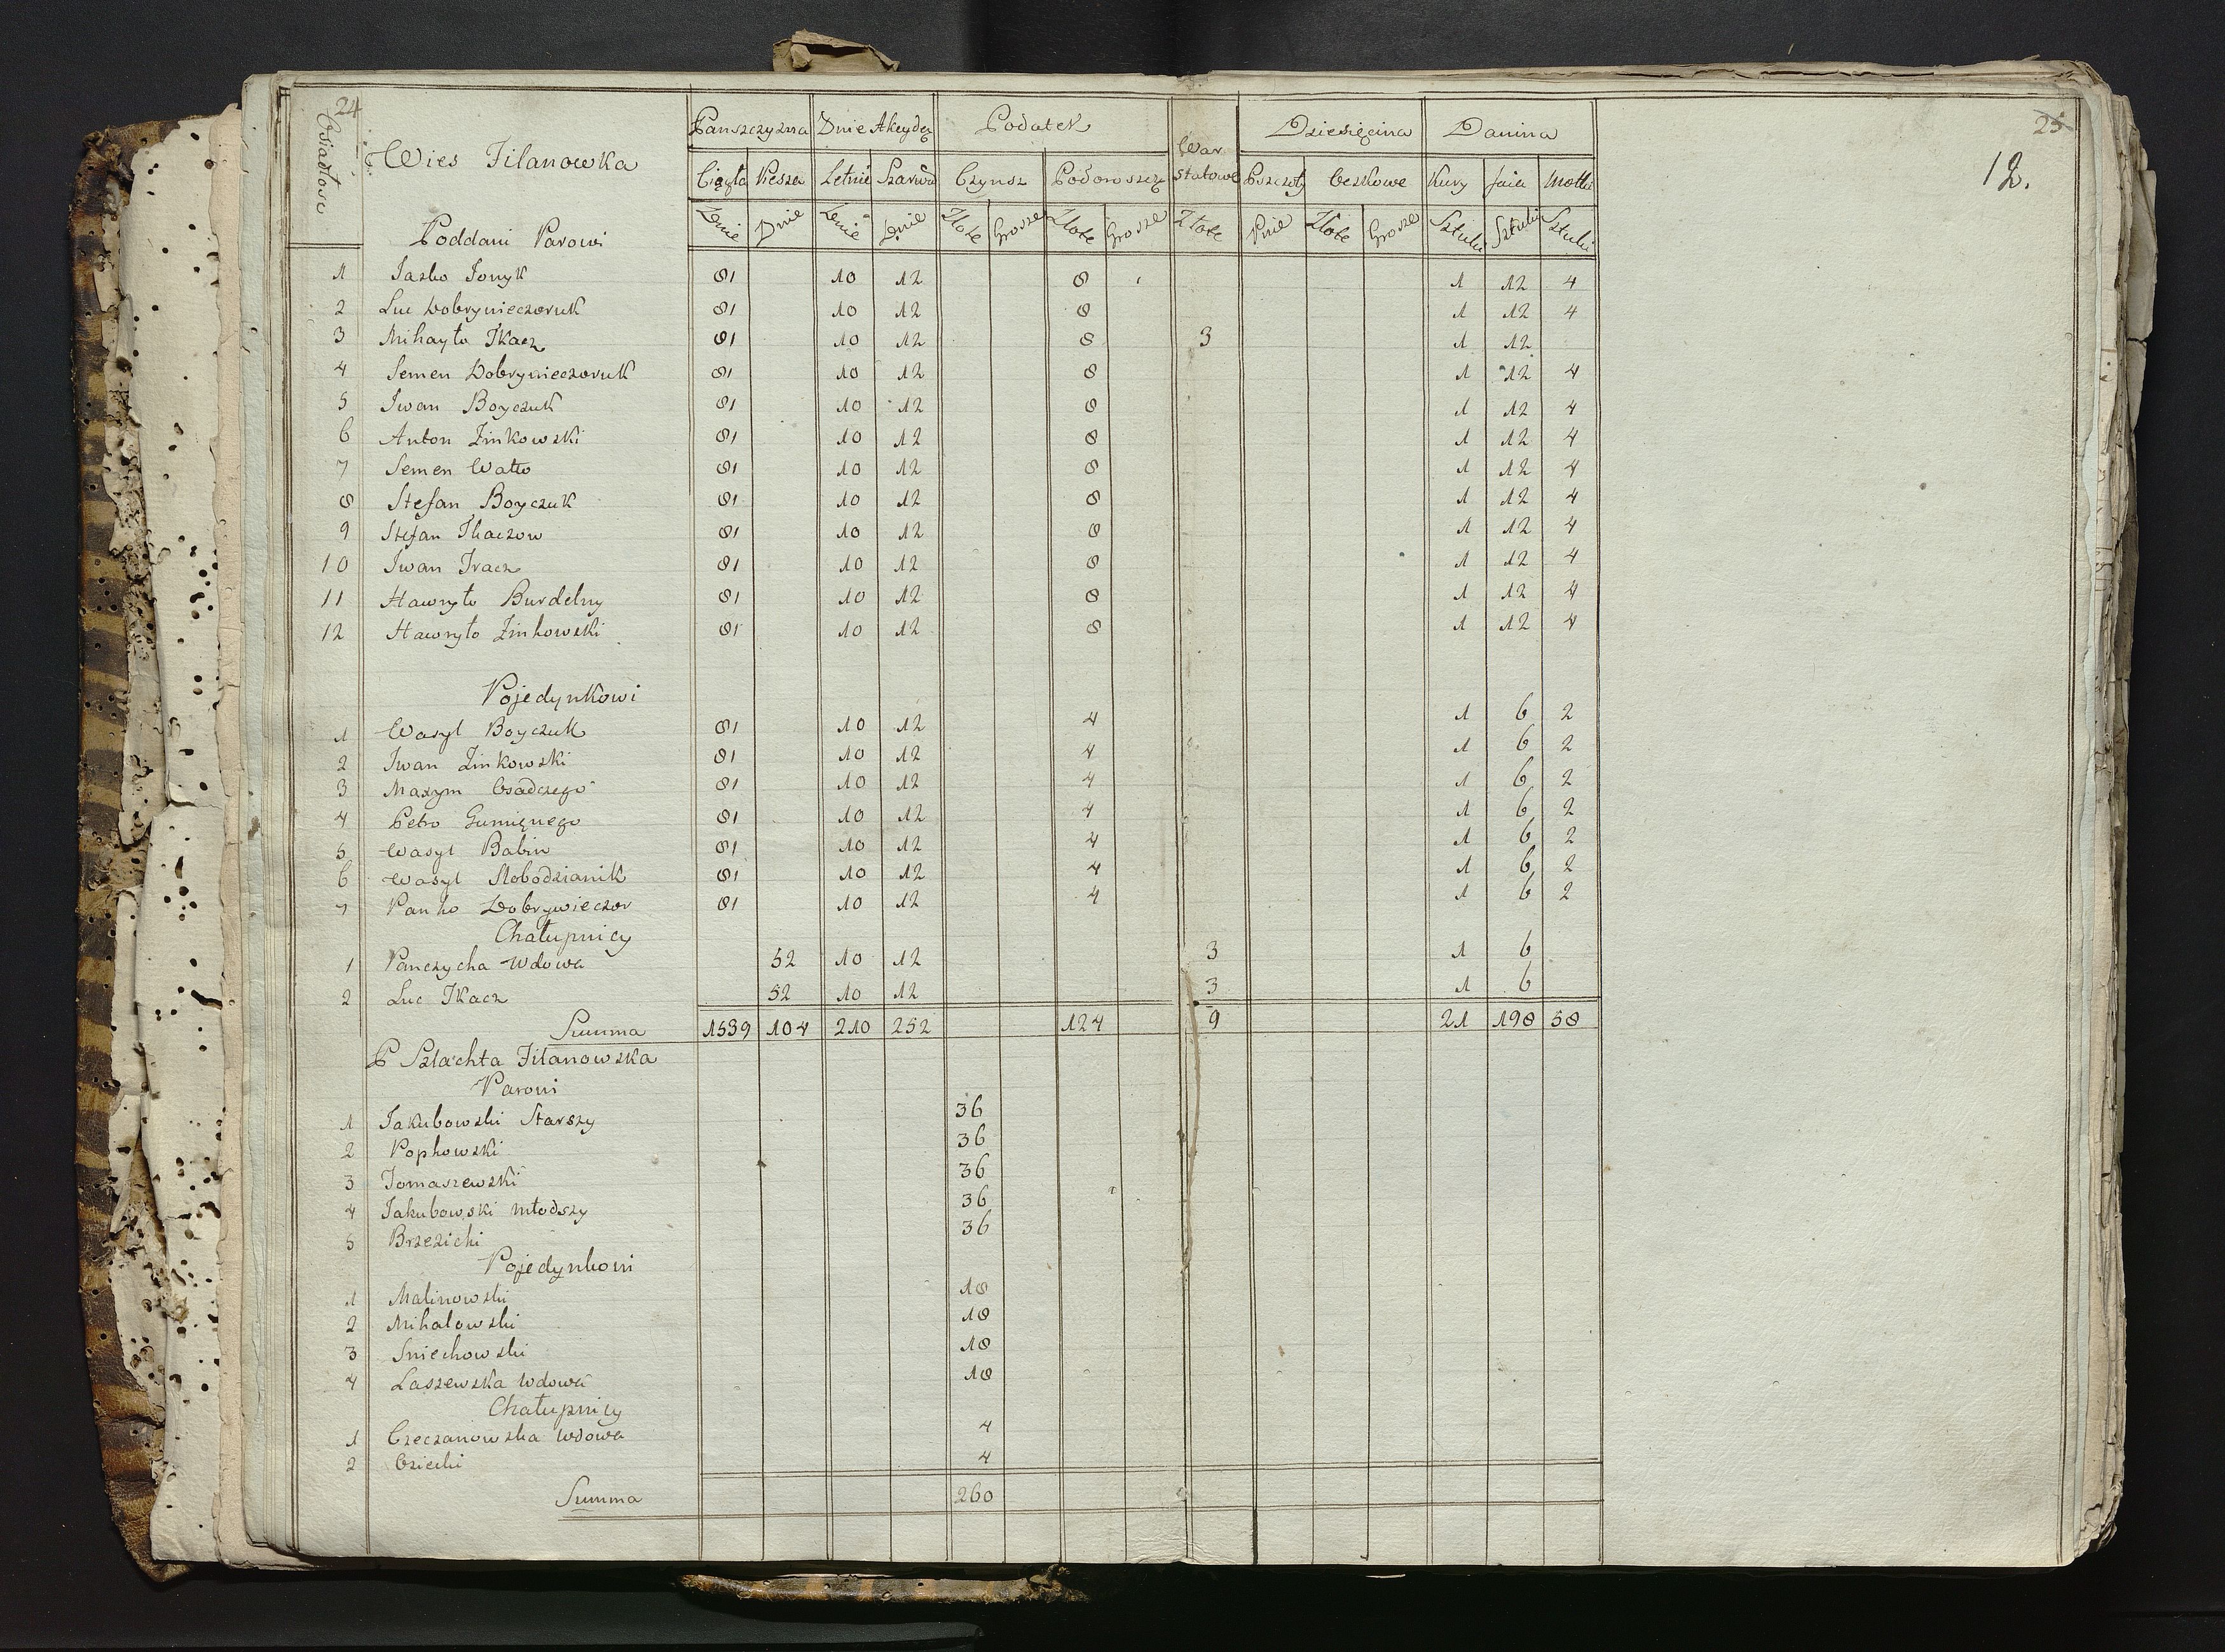 24
25
12.
Osiadłosc
Wies Filanowka
Panszczyzna Dnie Akcydę Podatek War Dziesięcina Danina
Ciągła Piesza Letnie Szarw Czynsz Podymowe statowe Pszczoły Oczkowe Kury Jaia Motki
Dnie Dnie Dnie Dnie Złote Grosze Złote Grosze Złote Pnie Złote Grosze Sztuki Sztuki Sztuki
Poddani Parowi
1 Jasko 81 10 12 8 1 12 4
2 Luc Dobrywieczoruk 81 10 12 8 1 12 4
3 Mihayło Tkacz 81 10 12 8 3 1 12
4 Semen Dobrywieczoruk 81 10 12 8 1 12 4
5 Iwan Boyczuk 81 10 12 8 1 12 4
6 Anton Zinkowski 81 10 12 8 1 12 4
7 Semen Watio 81 10 12 8 1 12 4
8 Stefan Boyczuk 81 10 12 8 1 12 4
9 Stefan Tkaczow 81 10 12 8 1 12 4
10 Iwan Tracz 81 10 12 8 1 12 4
11 Hawryło Burdelny 81 10 12 8 1 12 4
12 Hawryło Zinkowski 81 10 12 8 1 12 4
Pojedynkowi
1 Wasyl Boyczuk 81 10 12 4 1 6 2
2 Iwan Zinkowski 81 10 12 4 1 6 2
3 Maxym Osadczego 81 10 12 4 1 6 2
4 Petro Gumięnego 81 10 12 4 1 6 2
5 Wasyl Babin 81 10 12 4 1 6 2
6 Wasyl Slobodzianik 81 10 12 4 1 6 2
7 Panko Dobrywieczor 81 10 12 4 1 6 2
Chałupnicy
1 Panczycha Wdowa 52 10 12 3 1 6
2 Luc Tkacz 52 10 12 3 1 6
Summa 1539 104 210 252 124 9 21 198 58
P Szlachta Filanowska
Parowi
1 Jakubowski Starszy 36
2 Popkowski 36
3 Tomaszewski 36
4 Jakubowski młodszy 36
5 Brzezicki 36
Pojedynkowi
1 Malinowski 18
2 Mihalowski 18
3 Sniechowski 18
4 Laszewska Wdowa 18
Chałupnicy
1 Czeczanowska Wdowa 4
2 Osiecki 4
Summa 260